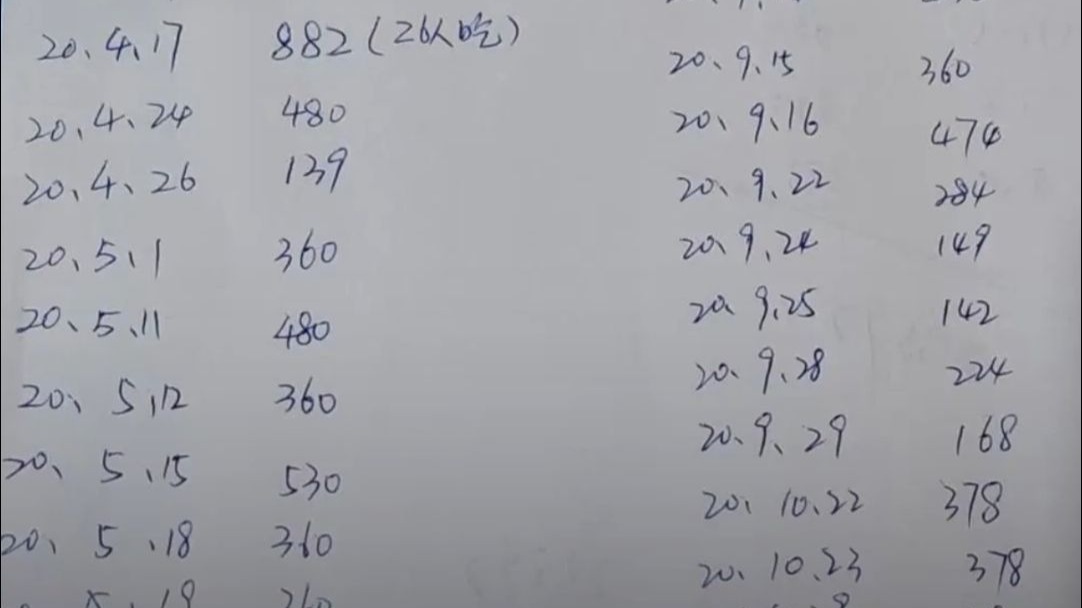 20、4、17 882（26人吃）
20、4、24 480
20、4、26 139
20、5、1 360
20、5、11 480
20、5、12 360
20、5、15 530
20、5、18 360
20、9、15 360
20、9、16 474
20、9、22 284
20、9、24 149
20、9、25 142
20、9、28 224
20、9、29 168
20、10、22 378
20、10、23 378